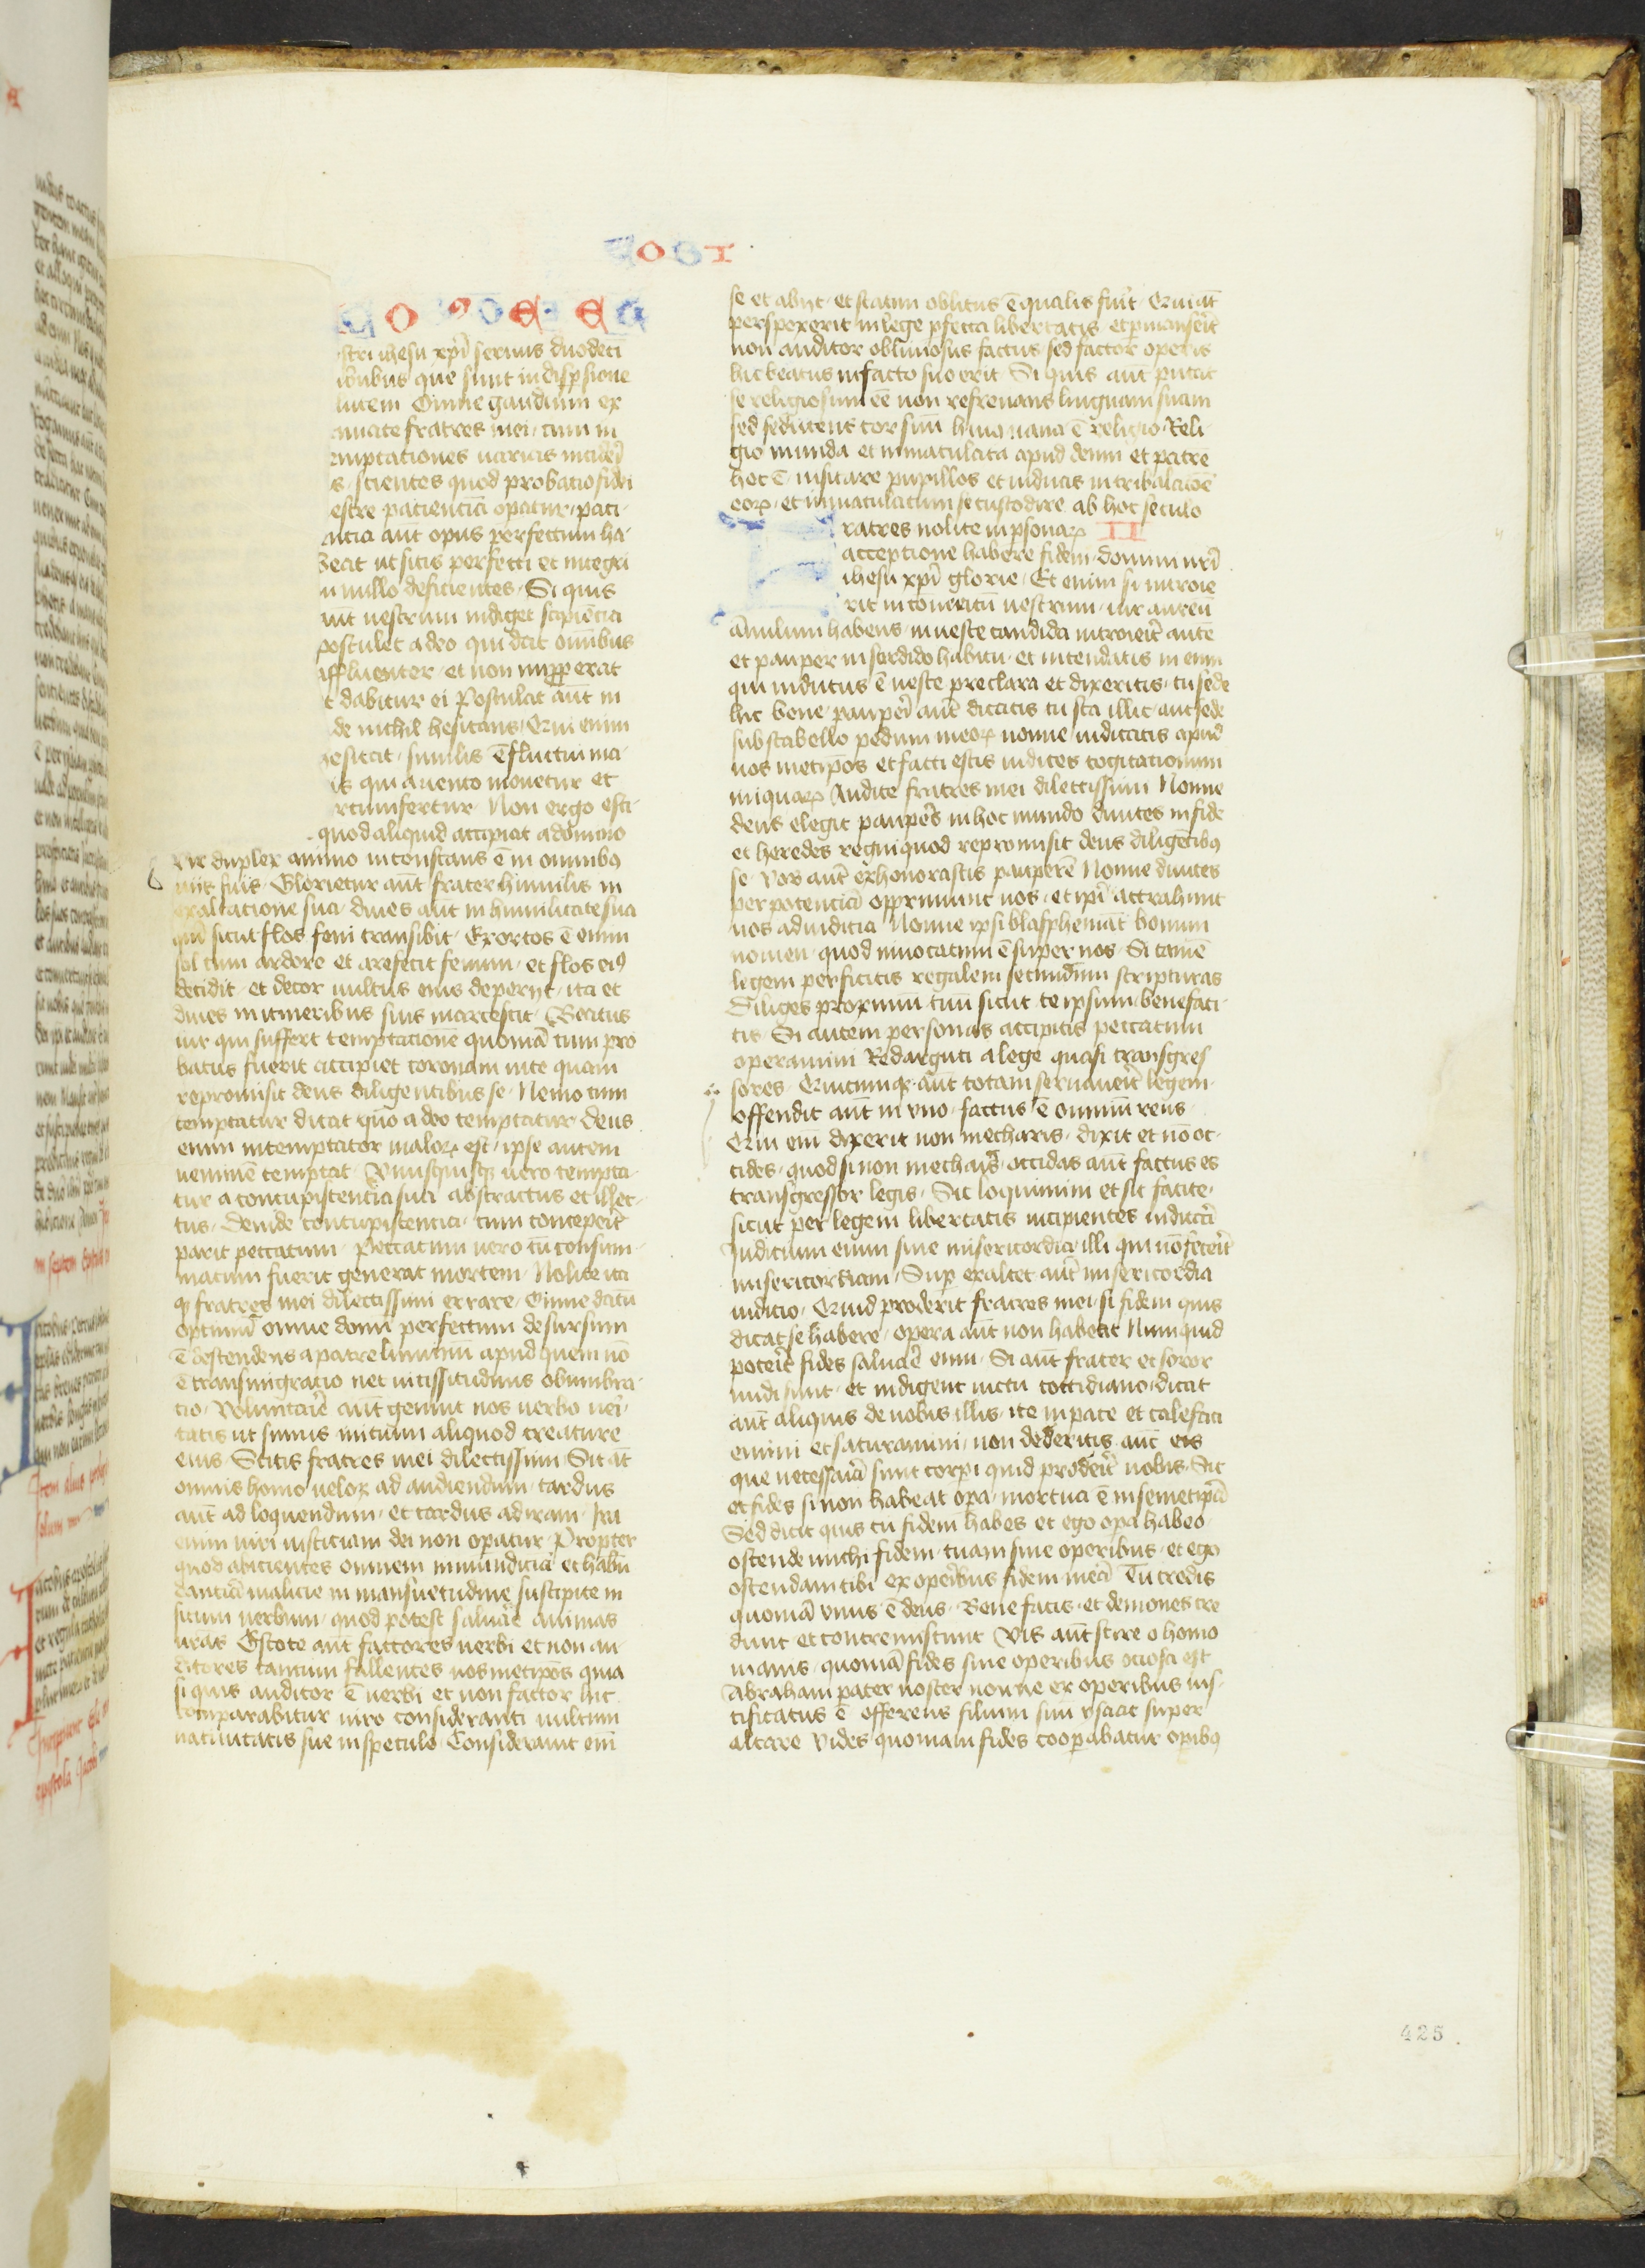 COBI
CO ET
stri ihesu xpi seruus duodeci
ibubus que sunt in dispersione
lutem Omne gaudium ex
timate fratres mei cum in
emptationes uarias incideri
s scientes quod probatio fidei
estre pacienciā opatur paci
ntia aūt opus perfectum ha
beat ut sitis perfecti et integri
n nullo deficientes Si quis
aūt uestrum indiget sapiēcia
postulet a deo qui dat omībus
affluenter et non improperat
t dabitur ei Postulat aūt in
de nichil hesitans Qui enim
hesitat similis ē fluctui ma
is qui a uento mouetur et
rcumfertur Non ergo esti
quod aliquid accipiat a domino
Vir duplex animo inconstans ē in omnibꝯ
uiis suis Glorietur aūt frater humilis in
exaltatione sua diues aūt in humilitate sua
qm̄ sicut flos feni transibit Exortos ē enim
sol cum ardore et arefecit fenum et flos eiꝯ
decidit et decor uultus eius deperijt ita et
diues in itineribus suis marcescit Beatus
uir qui suffert temptationē quoniā cum pro
batus fuerit accipiet coronam uite quam
repromisit deus diligentibus se Nemo cum
temptatur dicat quo a deo temptatur deus
enim intemptator maloꝝ est ipse autem
neminē temptat Vnusquisqꝫ uero tempta
tur a concupiscentia sua abstractus et illec
tus Deinde concupiscentia cum conceperit
parit peccatum Peccatum uero cū consum
matum fuerit generat mortem Nolite ita
qꝫ fratres mei dilectissimi errare Omne datū
optimū omne donū perfectum desursum
ē descendens a patre luminū apud quem nō
ē transmigratio nec uicissitudinis obumbra
tio Voluntarie aūt genuit nos uerbo ueri
tatis ut simus initium aliquod creature
eius Scitis fratres mei dilectissimi Sit āt
omnis homo uelox ad audiendum tardus
aūt ad loquendum et tardus ad iram Ira
enim uiri iusticiam dei non opatur Propter
quod abicientes omnem inmundiciā et habū
dantiā malicie in mansuetudine suscipite in
situm uerbum quod potest saluare animas
uras Estote aūt factores uerbi et non au
ditores tantum fallentes uosmetipos quia
si quis auditor ē uerbi et non factor hic
comparabitur uiro consideranti uultum
natiuitatis sue in speculo Considerauit eni
se et abijt et statim oblitus ē qualis fuit Qui āt
perspexerit in lege pfecta libertatis et pmanserit
non auditor obliuiosus factus sed factor operis
hic beatus in facto suo erit Si quis aūt putat
se religiosum eē non refrenans linguam suam
sed seducens cor suū huius uana ē religio Reli
gio munda et inmaculata apud deum et patrē
hec ē uisitare pupillos et uiduas in tribulatōe
eoꝝ et inmaculatum se custodire ab hoc seculo
ratres nolite in psonaꝝ II
acceptione habere fidem domini nri
ihesu xpi glorie Et enim si introie
rit in conuentū uestrum uir aureū
ānulum habens in ueste candida introierit autē
et pauper in sordido habitu et intendatis in eum
qui indutus ē ueste preclara et dixeritis tu sede
hic bene pauperi aūt dicatis tu sta illic aut sede
sub scabello pedum meoꝝ nonne iudicatis apud
uos metipos et facti estis iudices cogitationum
iniquaꝝ Audite fratres mei dilectissimi Nonne
deus elegit pauperes in hoc mundo diuites in fide
et heredes regni quod repromisit deus diligētibꝯ
se Vos aūt exhonorastis pauperē Nonne diuites
per potenciā opprimunt uos et ipi attrahunt
uos ad iudicia Nonne ipsi blasphemāt bonum
nomen quod inuocatum ē super uos Si tamē
legem perficitis regalem secundum scripturas
Diliges proximū tuū sicut te ipsum benefaci
tis Si autem personas accipitis peccatum
operamini Redarguti a lege quasi transgres
sores Quicumqꝫ aūt totam seruauerit legem
offendit aūt in vno factus ē omniū reus
Qui eni dixerit non mecharis dixit et nō oc
cides quod si non mecharis occidas aūt factus es
transgressor legis Sic loquimini et sic facite
sicut per legem libertatis incipientes iudicari
Iudicium enim sine misericordia illi qui nō fecerit
misericordiam Sup exaltet aūt misericordia
iudicio Quid proderit fratres mei si fidem quis
dicat se habere opera aūt non habeat Numquid
poterit fides saluare eum Si aūt frater et soror
nudi sunt et indigent uictu cottidiano dicat
aūt aliquis de uobis illis ite in pace et calefaci
emini et saturamini non dederitis aūt eis
que necessaria sunt corpi quid proderit uobis Sic
et fides si non habeat opa mortua ē in semetipā
Sed dicit quis tu fidem habes et ego opa habeo
ostende michi fidem tuam sine operibus et ego
ostendam tibi ex operibus fidem meā Tu credis
quoniā vnus ē deus Bene facis et demones cre
dunt et contremiscunt Vis aūt scire o homo
inanis quoniā fides sine operibus ociosa est
Abraham pater noster nonne ex operibus ius
tificatus ē offerens filium suū ysaac super
altare Vides quoniam fides cooperabatur opibꝯ
425